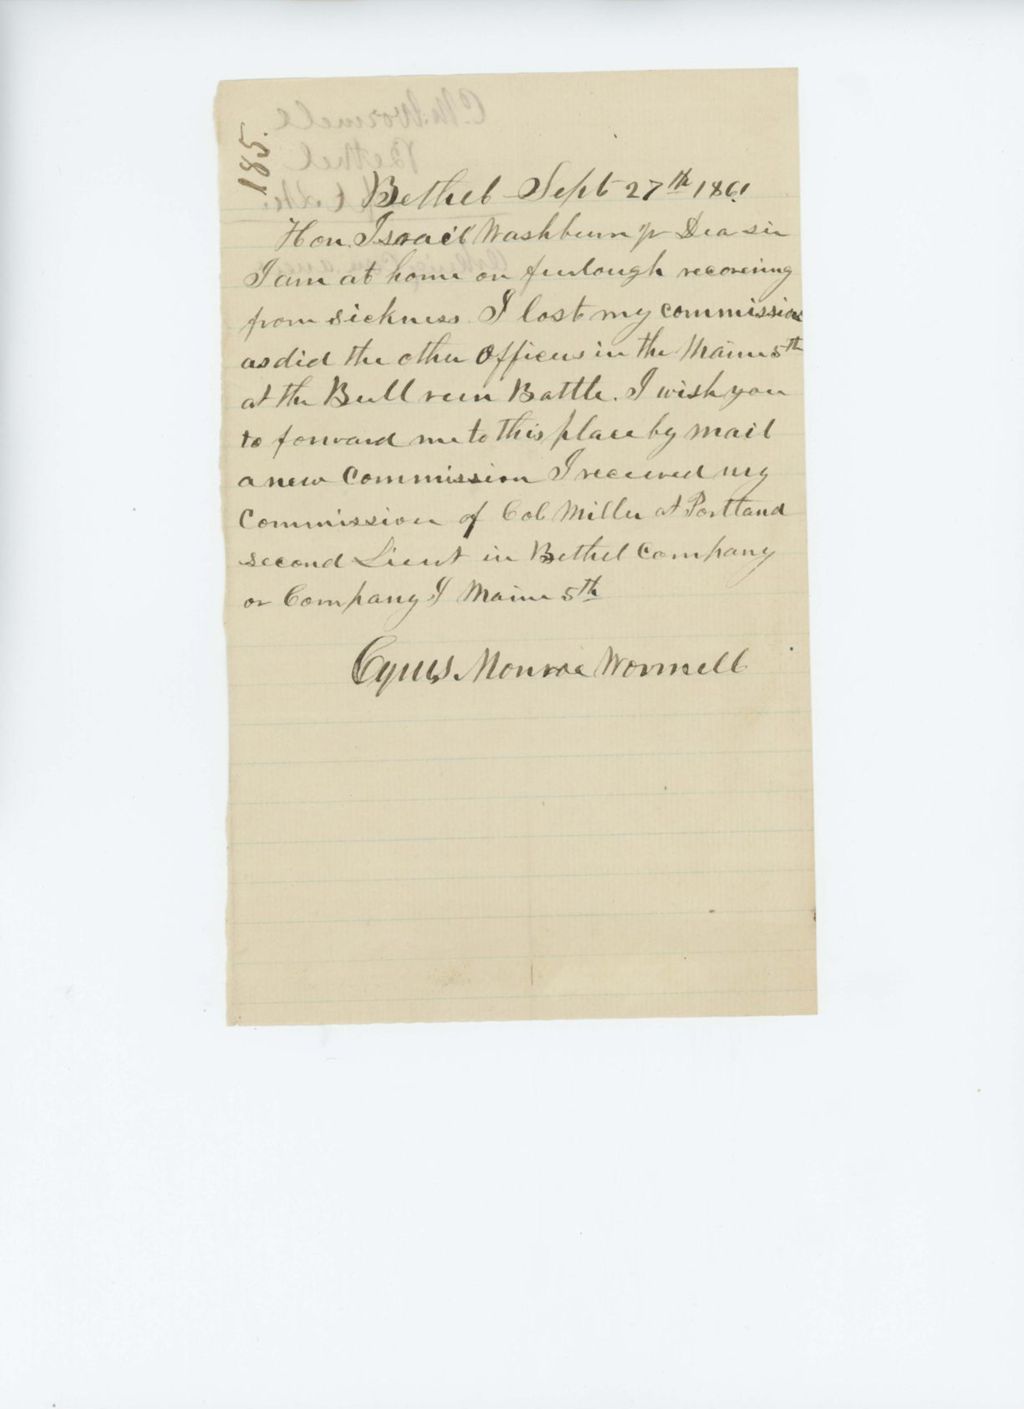 185.
Bethel Sept 27th 1861
Hon. Israel Washburn Jr Dea sir
I am at home on furlough recovering
from sickness. I lost my commission
as did the other Officers in the Maine 5th
at the Bull run Battle. I wish you
to forward me to this place by mail
a new Commission I received my
Commission of Col Miller at Portland
second Lieut in Bethel Company
or Company I Maine 5th
Cyrus Monroe Wormell
C. M. Wormell
Bethel